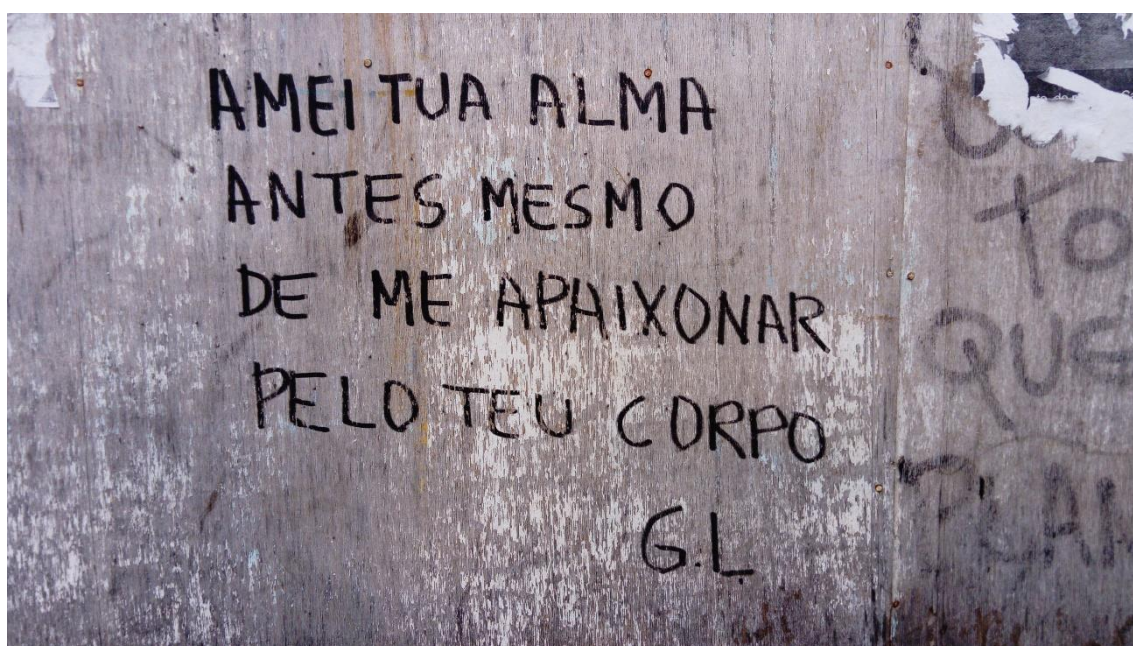 AMEI TUA ALMA
ANTES MESMO
DE ME APAIXONAR
PELO TEU CORPO
G.L
TO
QUE